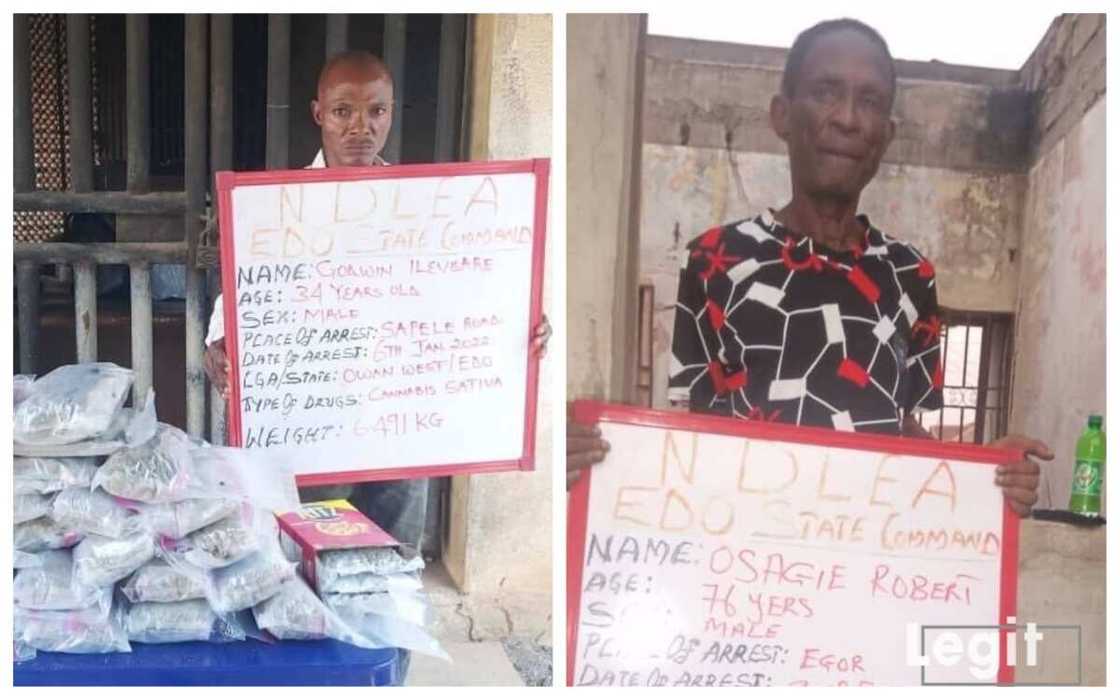 N D L E A
EDO STATE COMMAND
NAME: GODWIN ILEVBARE
AGE: 34 YEARS OLD
SEX: MALE
PLACE OF ARREST: SAPELE ROAD
DATE OF ARREST: 6TH JAN 2022
LGA/STATE: OWAN WEST/EDO
TYPE OF DRUGS: CANNABIS SATIVA
WEIGHT: 6.491KG
RITZ
N D L E A
EDO STATE COMMAND
NAME: OSAGIE ROBERT
AGE: 76 YERS
MALE
OF ARREST: EGOR
DATE OF ARREST:
Legit